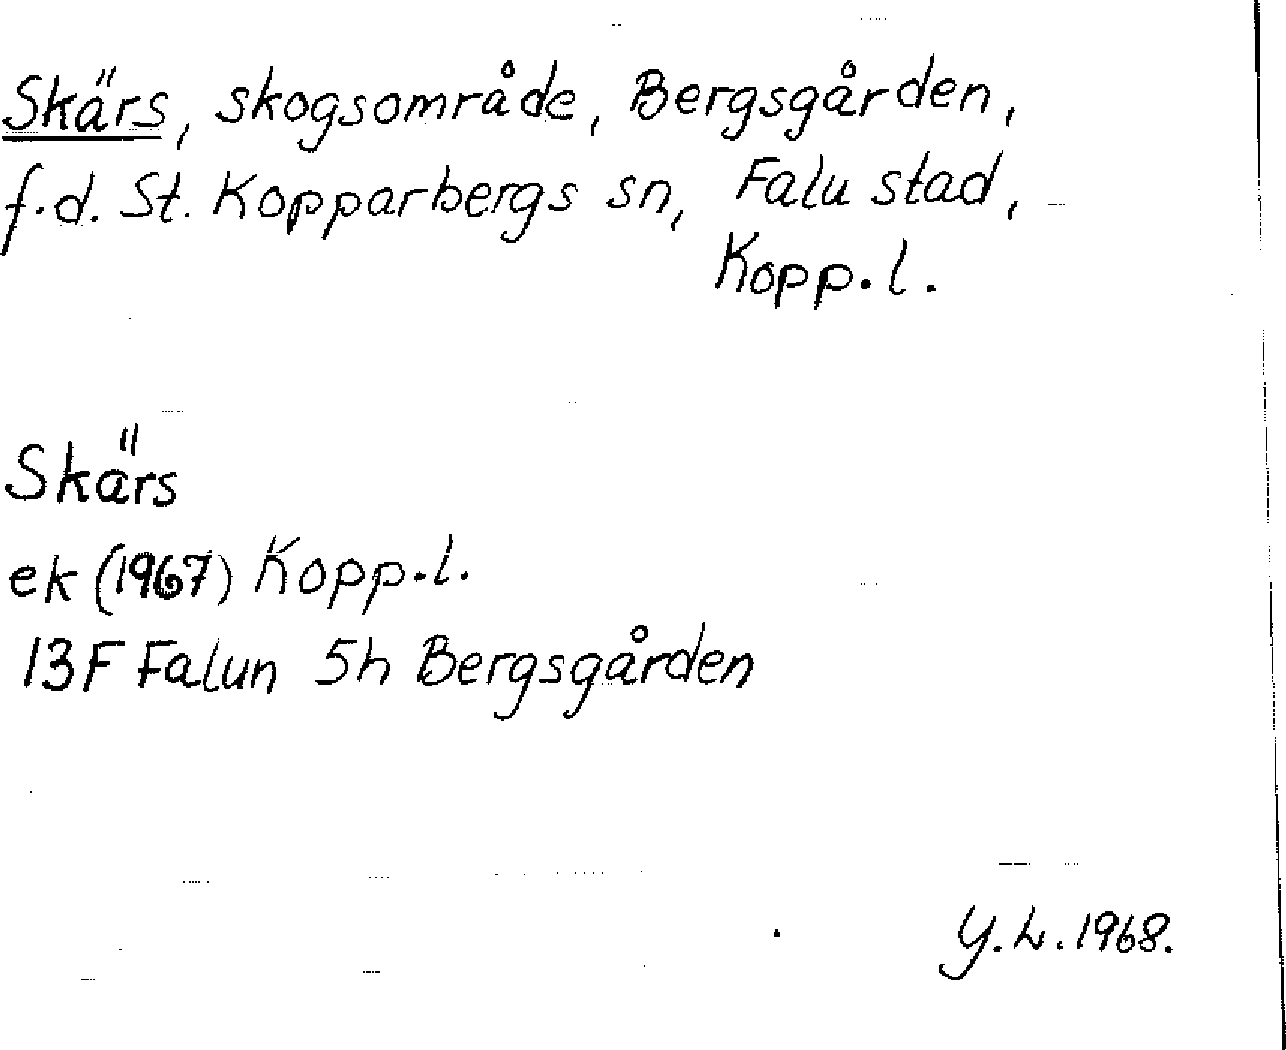 Skärs, skogsområde, Bergsgården,
f.d. St. Kopparbergs sn, Falu stad,
Kopp.l.
Skärs
ek (1967) Kopp.l.
13F Falun 5h Bergsgården
Y.L. 1968.